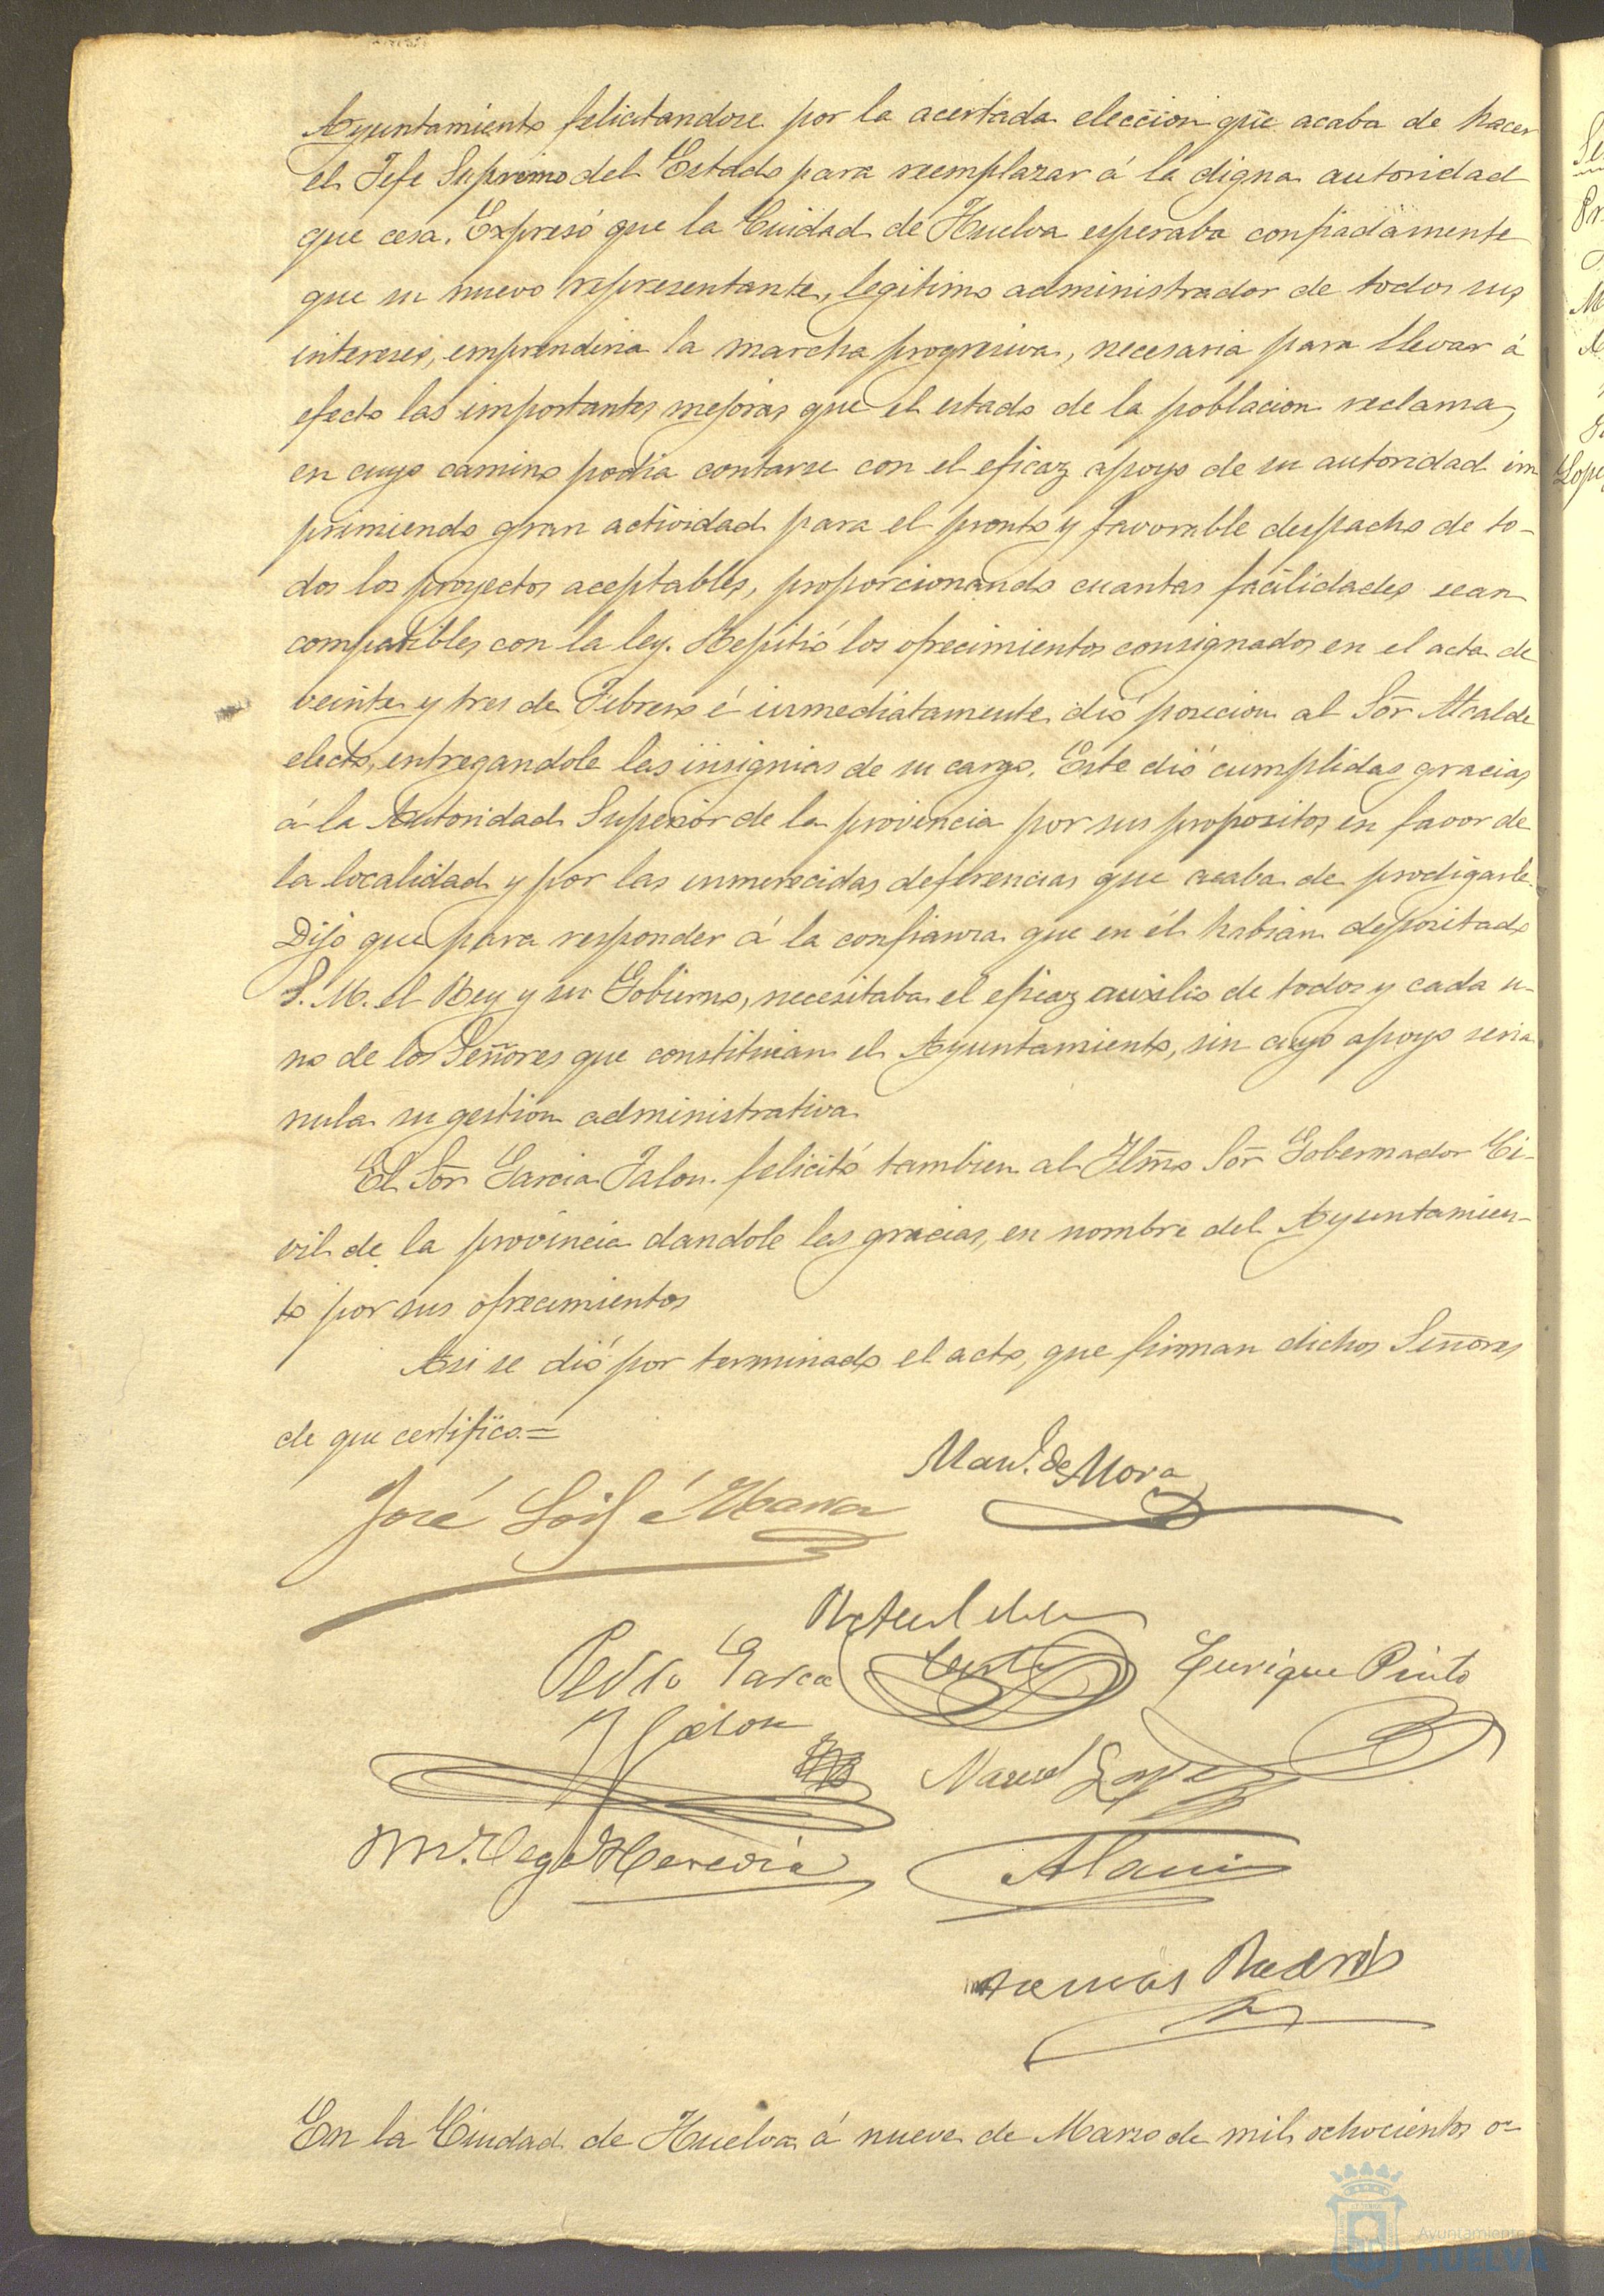 Ayuntamiento felicitandose por la acertada eleccion que acaba de hacer
el Jefe Supremo del Estado para reemplazar á la digna autoridad
que cesa. Expresó que la Ciudad de Huelva esperaba confiadamente
que su nuevo representante, legitimo administrador de todos sus
intereses, emprendiria la marcha progresiva, necesaria para llevar á
efecto las importantes mejoras que el estado de la poblacion reclama,
en cuyo camino podia contarse con el eficaz apoyo de su autoridad im
primiendo gran actividad para el pronto y favorable despacho de to-
dos los proyectos aceptables, proporcionando cuantas facilidades sean
compatibles con la ley. Repitió los ofrecimientos consignados en el acta de
veinte y tres de Febrero é inmediatamente dió posecion al Sor Alcalde
electo, entregandole las insignias de su cargo. Este dió cumplidas gracias
á la Autoridad Superior de la provincia por sus propositos en favor de
la localidad y por las inmerecidas deferencias que acaba de prodigarle.
Dijo que para responder á la confianza que en él habian depositado
S. M. el Rey y su Gobierno, necesitaba el eficaz auxilio de todos y cada u-
no de los Señores que constituian el Ayuntamiento, sin cuyo apoyo seria
nula su gestion administrativa.
El Sor Garcia Jalon felicitó tambien al Ilmo Sor Gobernador Ci-
vil de la provincia dandole las gracias, en nombre del Ayuntamien-
to por sus ofrecimientos
Asi se dió por terminado el acto, que firman dichos Señores
de que certifico.=
Manl. de Mora
José
Pedro Garcia
Jalon
Enrique Pinto
Manuel Lopez
M. Vega Heredia
Alanis
En la Ciudad de Huelva á nueve de Marzo de mil ochocientos o-
Ayuntamiento de
HUELVA